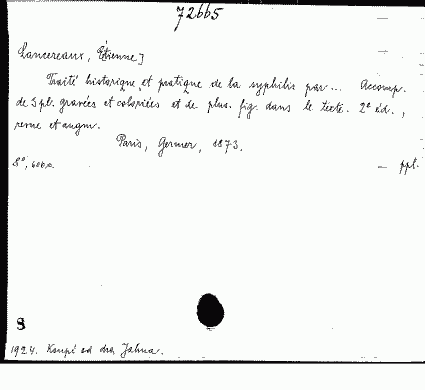 72665
Lancereaux, Étienne]
Traité historique et pratique de la syphilis par ... Accomp.
de 3 pl. gravées et coloriées et de plus. fig. dans le texte. 2e éd.,
revue et augm.
Paris, Germer, 1873.
8°, — ppt.
8
1924. Koupě od dra Jahna.